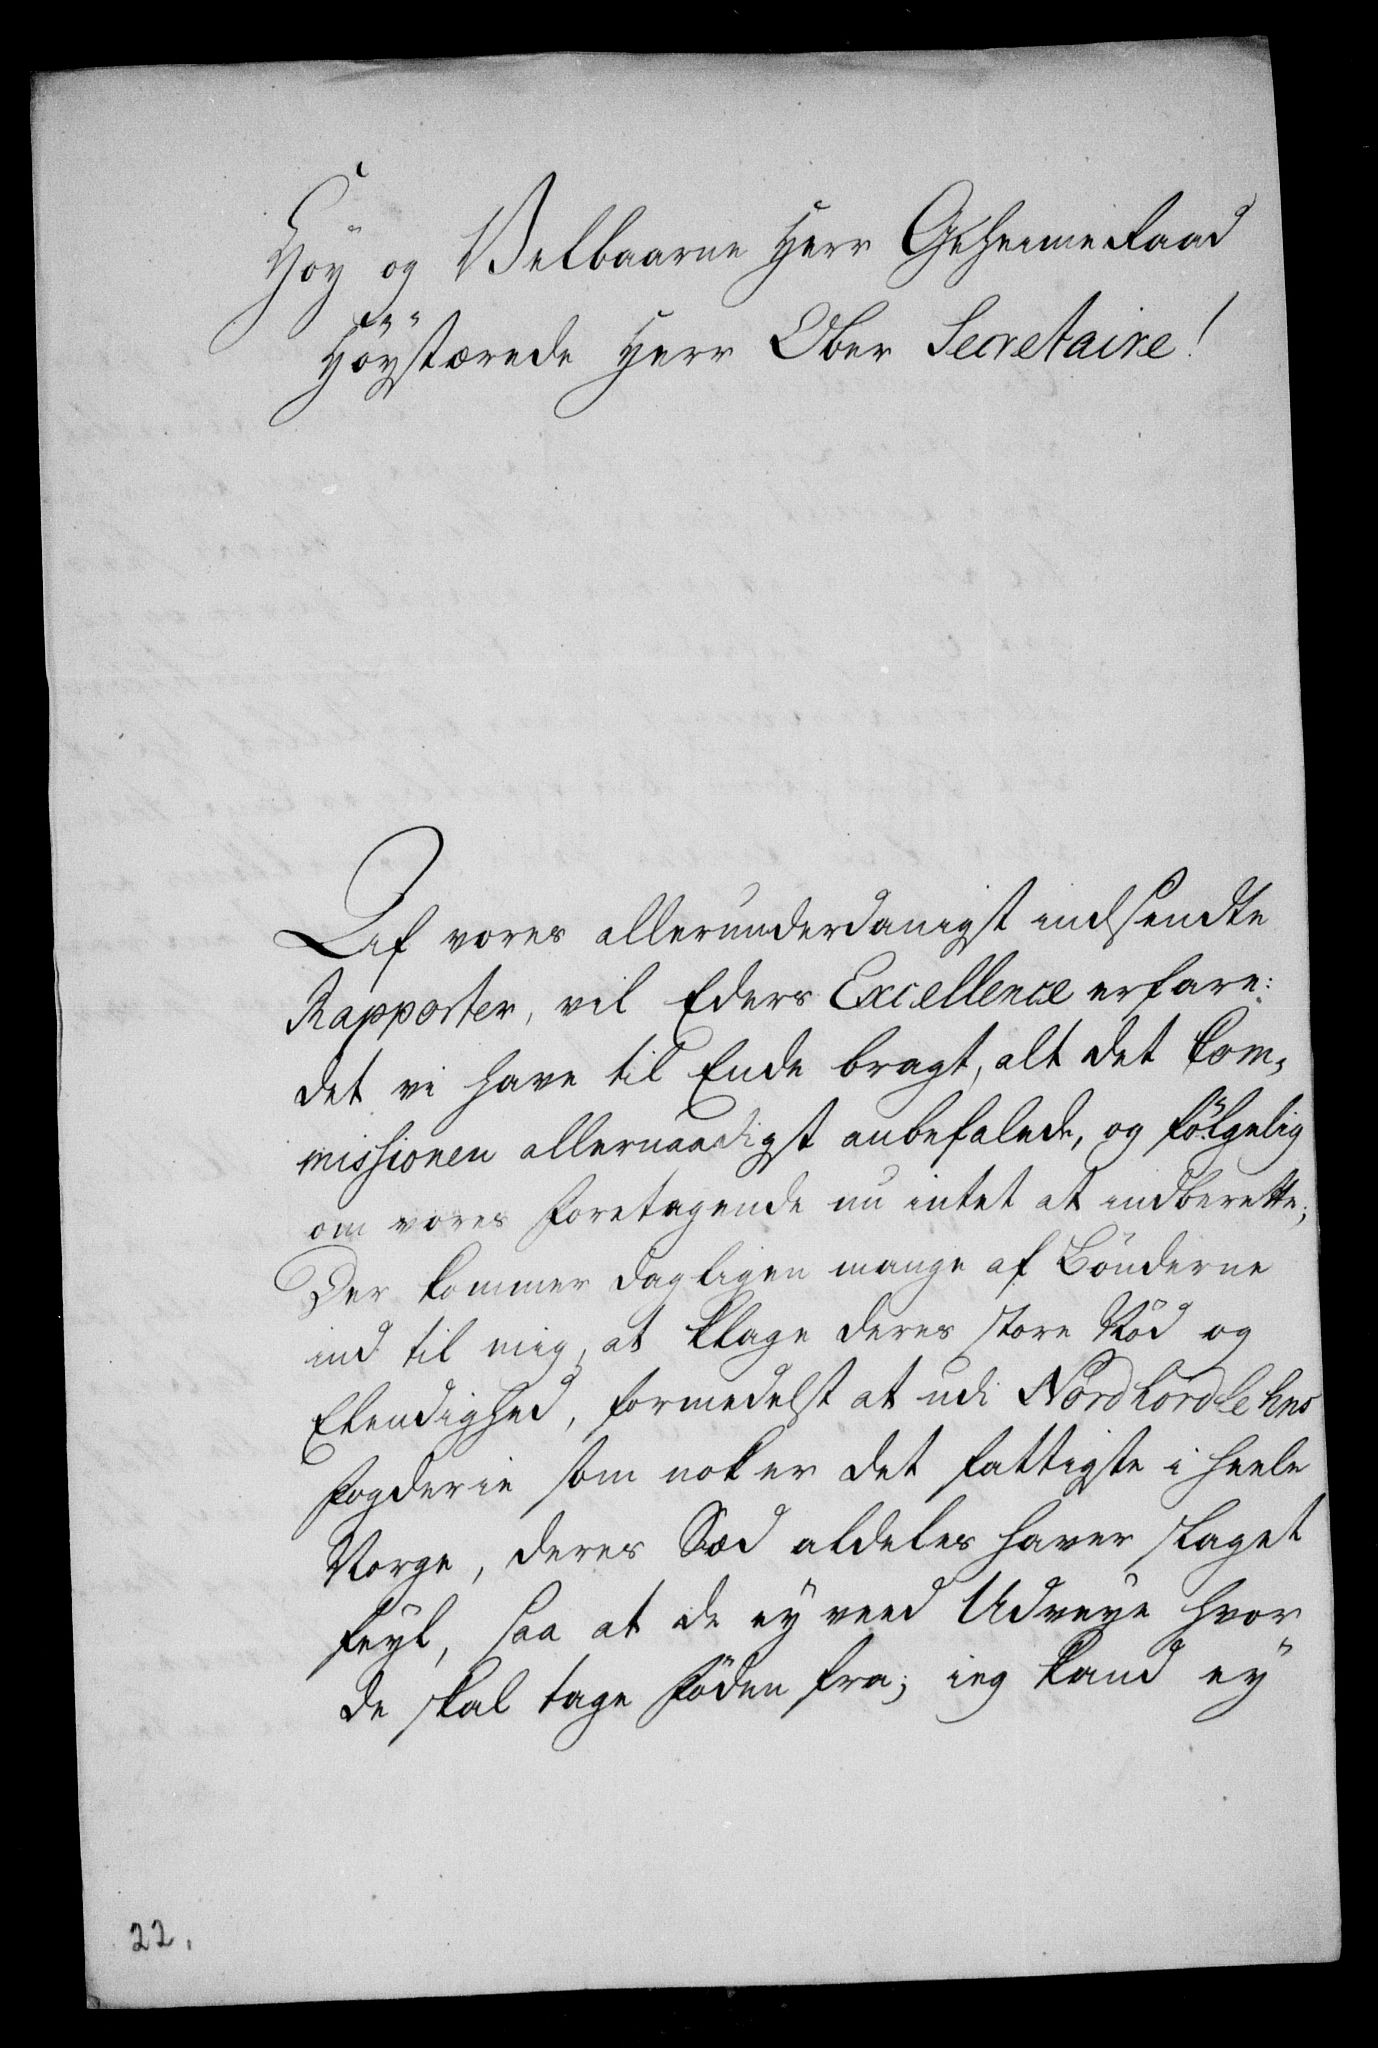 Høy og Velbaarne Herr Geheime Raad
Høystærede Herr Ober Secretaire!
Af vores allerunderdanigst indsendte
Rapporter, vil Eders Excellence erfare:
det vi have til Ende bragt, alt det Com-
missionen allernaadigst anbefalede, og følgelig
om vores Foretagende nu intet at indberette;
Der kommer dagligen mange af Bønderne
ind til mig, at klage deres store Nød og
Elendighed, formedelst at udi Nordhordlehns
Fogderie som nok er det fattigste i heele
Norge, deres Sæd aldeles haver slaget
feyl, saa at de ey veed Udveye hvor
de skal tage Føden fra; ieg kand ey
22.